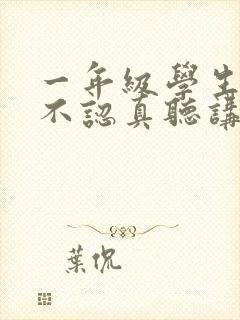 一年級學生
不認真聽講
葉侃